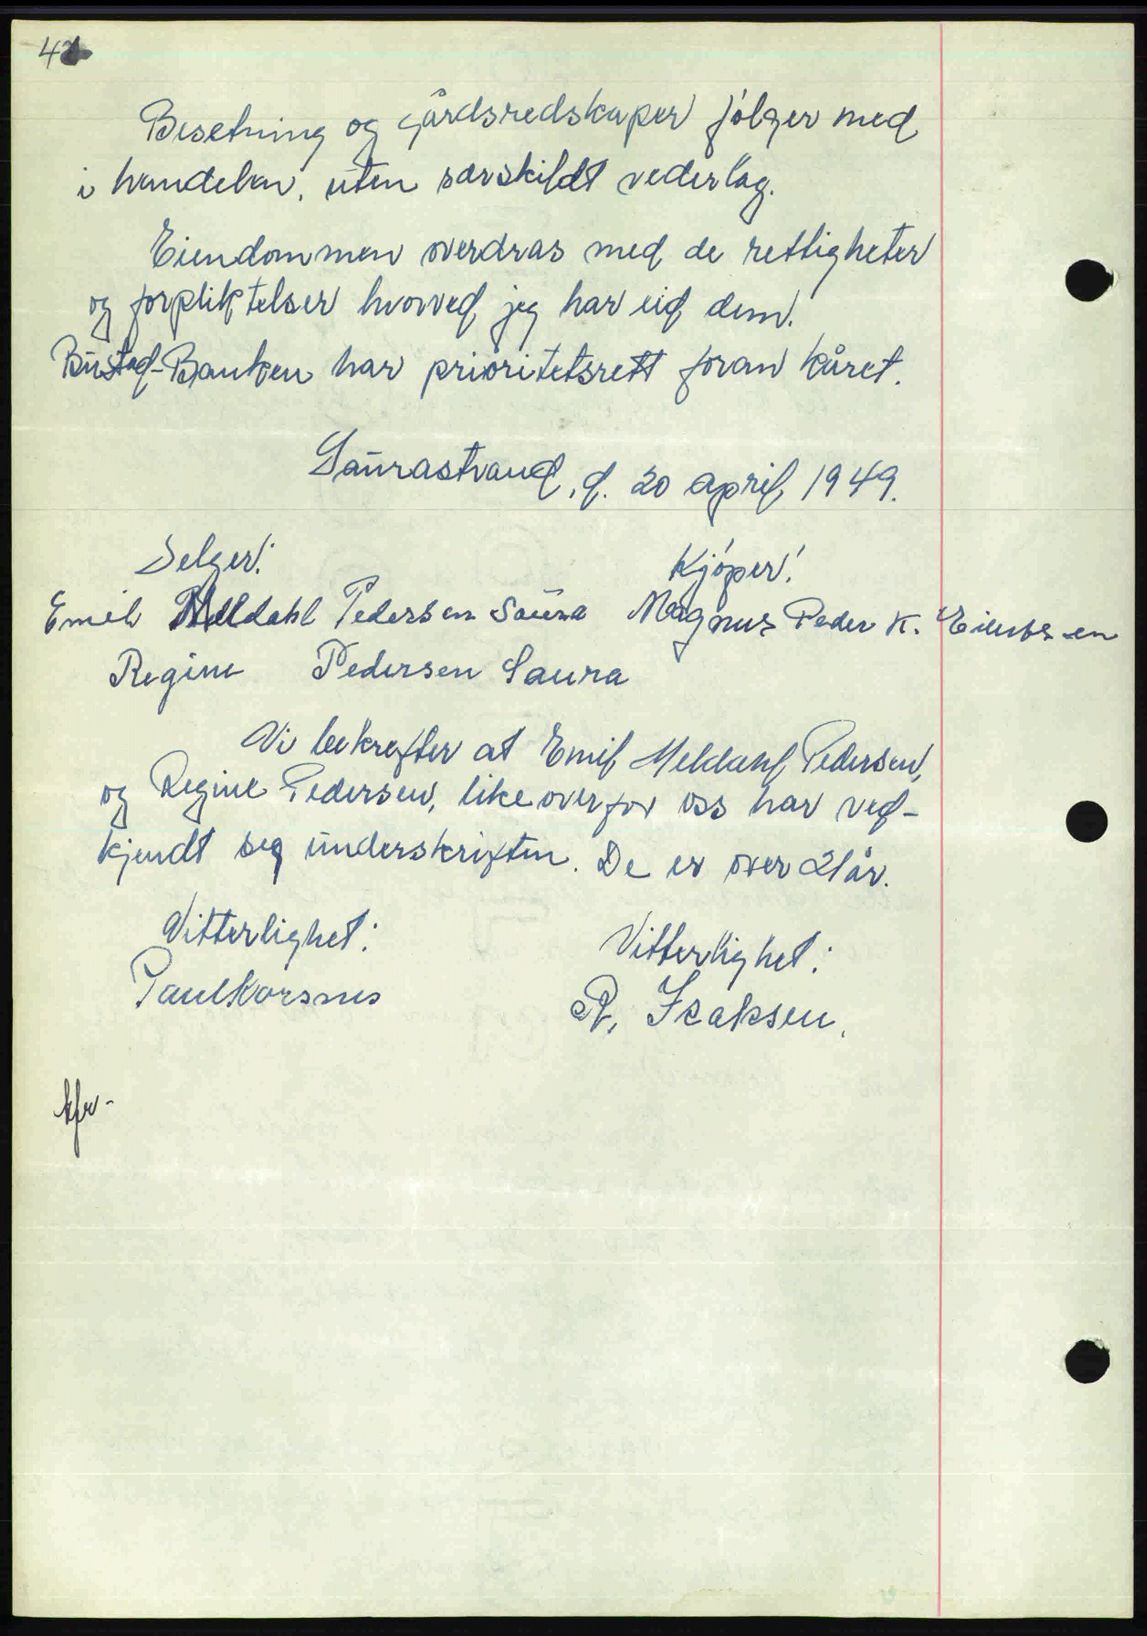 Besetning og gårdsredskaper følger med
i handelen, uten særskildt vederlag.
Eiendommen overdras med de rettigheter
og forpliktelser hvorved jeg har eid dem.
Bustad-Banken har prioritetsrett foran kåret.
Saurastrand, d. 20 april 1949.
Selger: Kjøper:
Emil Meldahl Pedersen Saura Magnus Peder K.
Regine Pedersen Saura
Vi bekrefter at Emil Meldahl Pedersen,
og Regine Pedersen, likeoverfor oss har ved-
kjendt seg underskriften. De er over 21 år.
Vitterlighet: Vitterlighet:
Paul Korsnes R. Isaksen.